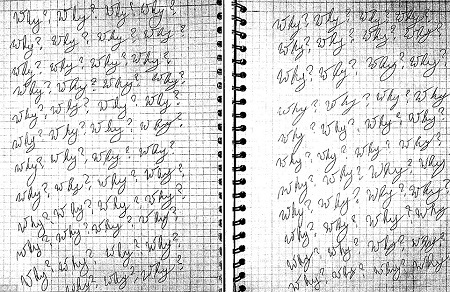 Why?, Why?, Why?, Why?
Why?, Why?, Why?, Why?
Why?, Why?, Why?, Why?
Why?, Why?, Why?, Why?
Why?, Why?, Why?, Why?
Why?, Why?, Why?, Why?
Why?, Why?, Why?, Why?
Why?, Why?, Why?, Why?
Why?, Why?, Why?, Why?
Why?, Why?, Why?, Why?
Why?, Why?, Why?, Why?
Why?, Why?, Why?
Why?, Why?, Why?, Why?
Why?, Why?, Why?, Why?
Why?, Why?, Why?, Why?
Why?, Why?, Why?, Why?
Why?, Why?, Why?, Why?
Why?, Why?, Why?, Why?
Why?, Why?, Why?, Why?
Why?, Why?, Why?, Why?
Why?, Why?, Why?, Why?
Why?, Why?, Why?, Why?
Why?, Why?, Why?, Why?